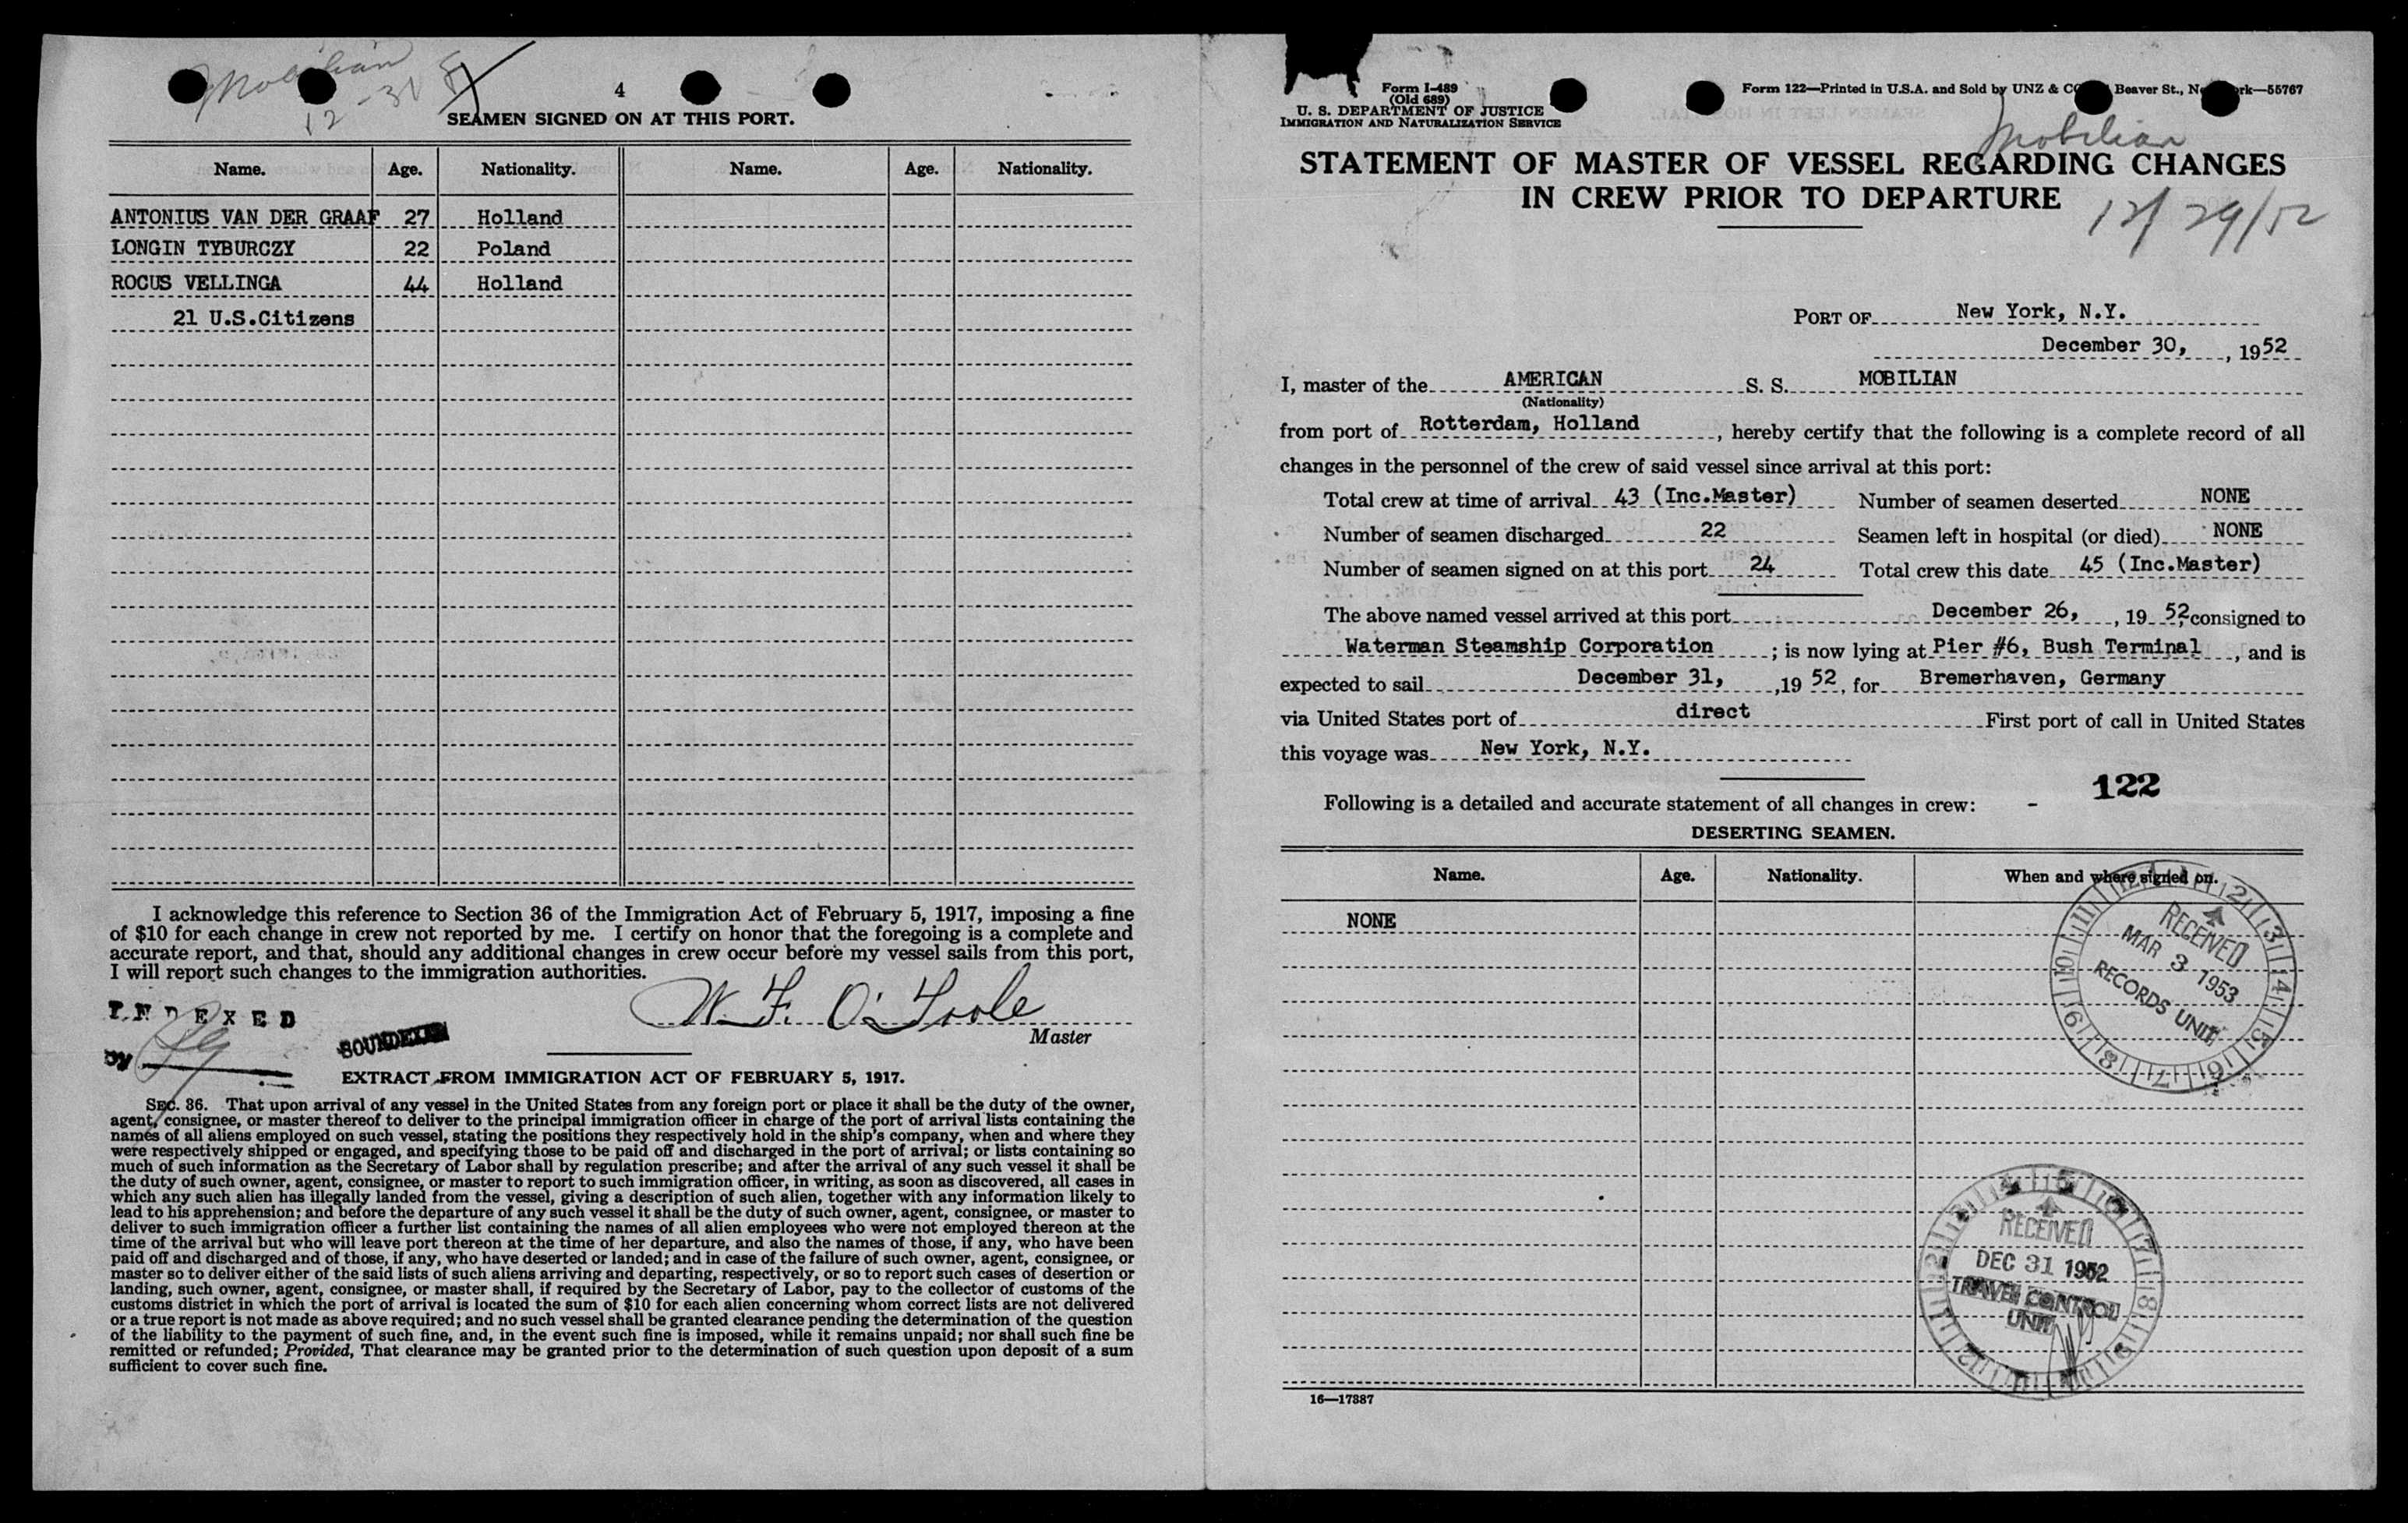 Mobilian
12-31
4
SEAMEN SIGNED ON AT THIS PORT.
Name. Age. Nationality. Name. Age. Nationality.
ANTONIUS VAN DER GRAAF 27 Holland
LONGIN TYBURCZY 22 Poland
ROCUS VELLINGA 44 Holland
21 U.S.Citizens
I acknowledge this reference to Section 36 of the Immigration Act of February 5, 1917, imposing a fine
of $10 for each change in crew not reported by me. I certify on honor that the foregoing is a complete and
accurate report, and that, should any additional changes in crew occur before my vessel sails from this port,
I will report such changes to the immigration authorities.
W. F. O'Toole
Master
INDEXED
by
SOUNDEXED
EXTRACT FROM IMMIGRATION ACT OF FEBRUARY 5, 1917.
SEC. 36. That upon arrival of any vessel in the United States from any foreign port or place it shall be the duty of the owner,
agent, consignee, or master thereof to deliver to the principal immigration officer in charge of the port of arrival lists containing the
names of all aliens employed on such vessel, stating the positions they respectively hold in the ship's company, when and where they
were respectively shipped or engaged, and specifying those to be paid off and discharged in the port of arrival; or lists containing so
much of such information as the Secretary of Labor shall by regulation prescribe; and after the arrival of any such vessel it shall be
the duty of such owner, agent, consignee, or master to report to such immigration officer, in writing, as soon as discovered, all cases in
which any such alien has illegally landed from the vessel, giving a description of such alien, together with any information likely to
lead to his apprehension; and before the departure of any such vessel it shall be the duty of such owner, agent, consignee, or master to
deliver to such immigration officer a further list containing the names of all alien employees who were not employed thereon at the
time of the arrival but who will leave port thereon at the time of her departure, and also the names of those, if any, who have been
paid off and discharged and of those, if any, who have deserted or landed; and in case of the failure of such owner, agent, consignee, or
master so to deliver either of the said lists of such aliens arriving and departing, respectively, or so to report such cases of desertion or
landing, such owner, agent, consignee, or master shall, if required by the Secretary of Labor, pay to the collector of customs of the
customs district in which the port of arrival is located the sum of $10 for each alien concerning whom correct lists are not delivered
or a true report is not made as above required; and no such vessel shall be granted clearance pending the determination of the question
of the liability to the payment of such fine, and, in the event such fine is imposed, while it remains unpaid; nor shall such fine be
remitted or refunded; Provided, That clearance may be granted prior to the determination of such question upon deposit of a sum
sufficient to cover such fine.
Form I-489
(Old 689)
U. S. DEPARTMENT OF JUSTICE
IMMIGRATION AND NATURALIZATION SERVICE
Form 122—Printed in U.S.A. and Sold by UNZ & CO Beaver St., New York—55767
Mobilian
STATEMENT OF MASTER OF VESSEL REGARDING CHANGES
IN CREW PRIOR TO DEPARTURE
12/29/52
PORT OF New York, N.Y.
December 30, , 1952
I, master of the AMERICAN S. S. MOBILIAN
(Nationality)
from port of Rotterdam, Holland , hereby certify that the following is a complete record of all
changes in the personnel of the crew of said vessel since arrival at this port:
Total crew at time of arrival 43 (Inc.Master) Number of seamen deserted NONE
Number of seamen discharged 22 Seamen left in hospital (or died) NONE
Number of seamen signed on at this port 24 Total crew this date 45 (Inc.Master)
The above named vessel arrived at this port December 26, , 19 52, consigned to
Waterman Steamship Corporation ; is now lying at Pier #6, Bush Terminal , and is
expected to sail December 31, ,19 52, for Bremerhaven, Germany
via United States port of direct First port of call in United States
this voyage was New York, N.Y.
122
Following is a detailed and accurate statement of all changes in crew: -
DESERTING SEAMEN.
Name. Age. Nationality. When and where signed on.
NONE
RECEIVED
MAR 3 1953
RECORDS UNIT
RECEIVED
DEC 31 1952
TRAVEL CONTROL
UNIT
16—17387